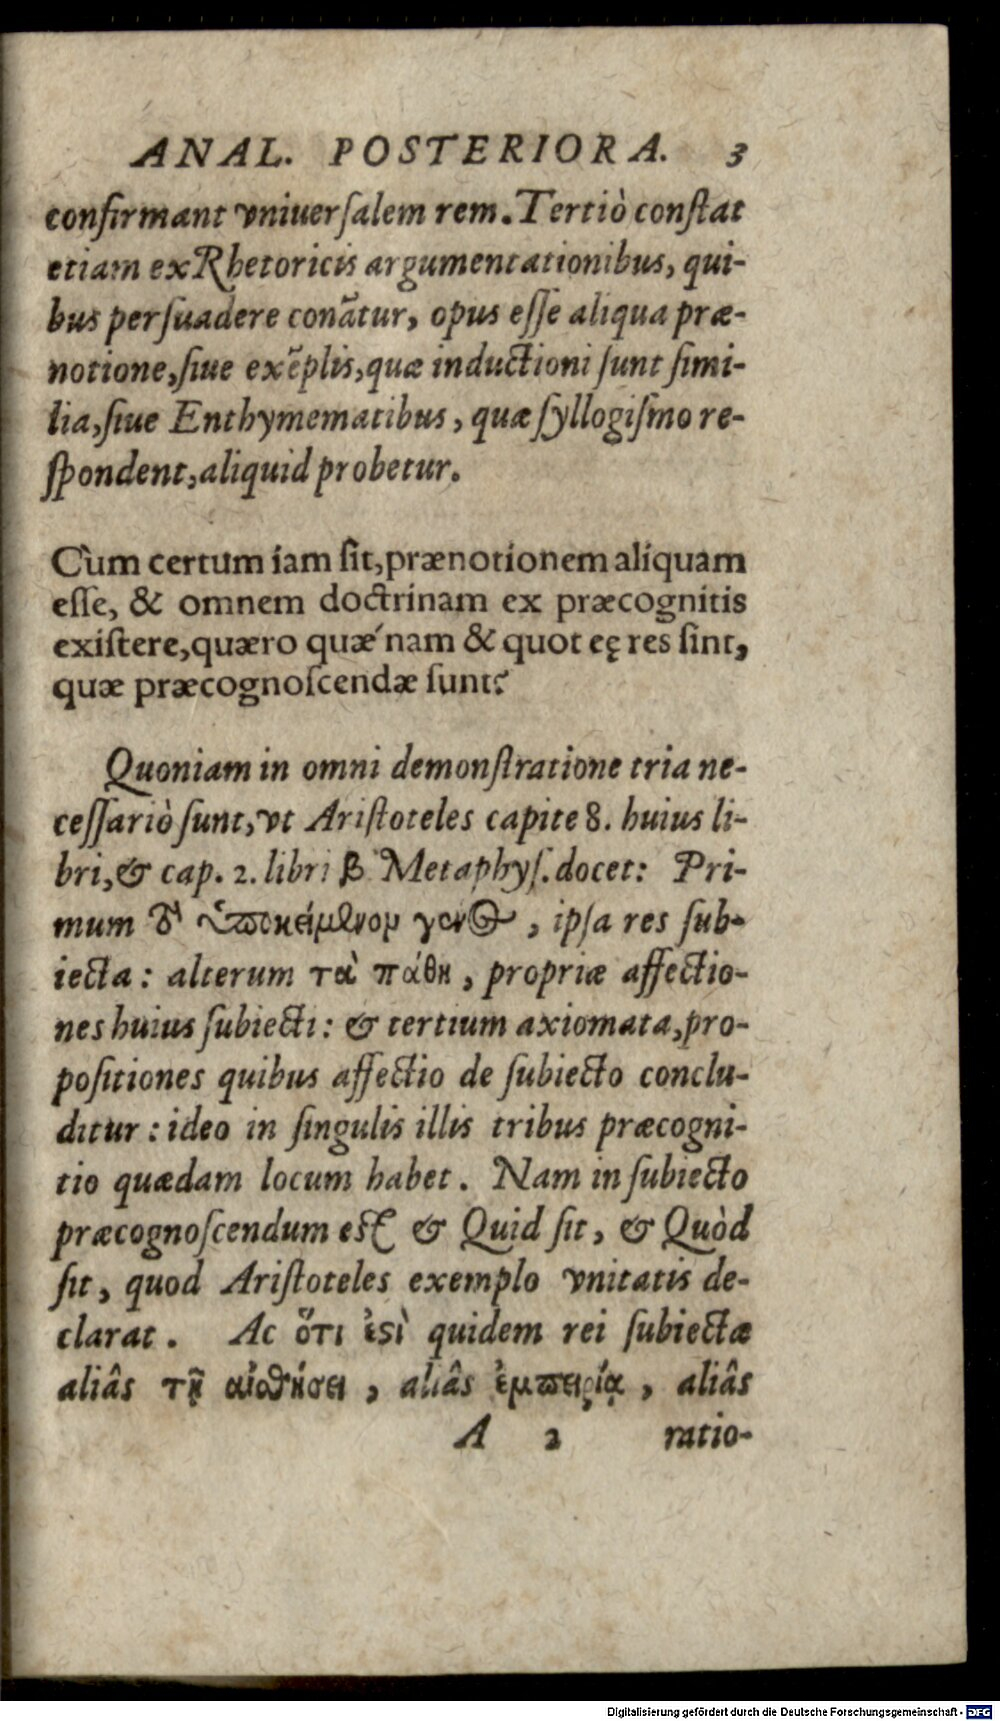 ANAL. POSTERIORA. 3
confirmant vniuerſalem rem. Tertiò conſtat
etiam ex Rhetoricis argumentationibus, qui-
bus perſuadere conātur, opus eſſe aliqua præ-
notione, ſiue exēplis, quæ inductioni ſunt ſimi-
lia, ſiue Enthymematibus, quæ ſyllogiſmo re-
ſpondent, aliquid probetur.
Cùm certum iam ſit, prænotionem aliquam
eſſe, & omnem doctrinam ex præcognitis
exiſtere, quæro quæ´nam & quot eę res ſint,
quæ præcognoſcendæ ſunt?
Quoniam in omni demonſtratione tria ne-
ceſſariò ſunt, vt Ariſtoteles capite 8. huius li-
bri, & cap. 2. libri β Metaphyſ. docet: Pri-
mum τὸ ὑποκείμενον γένος, ipſa res ſub-
iecta: alterum τὰ πάθη, propriæ affectio-
nes huius ſubiecti: & tertium axiomata, pro-
poſitiones quibus affectio de ſubiecto conclu-
ditur: ideo in ſingulis illis tribus præcogni-
tio quædam locum habet. Nam in ſubiecto
præcognoſcendum eſt & Quid ſit, & Quòd
ſit, quod Ariſtoteles exemplo vnitatis de-
clarat. Ac ὅτι ἐϛὶ quidem rei ſubiectæ
aliâs τῇ αἰσθήσει, aliâs ἐμπειρίᾳ, aliâs
A 2 ratio-
Digitalisierung gefördert durch die Deutsche Forschungsgemeinschaft - DFG